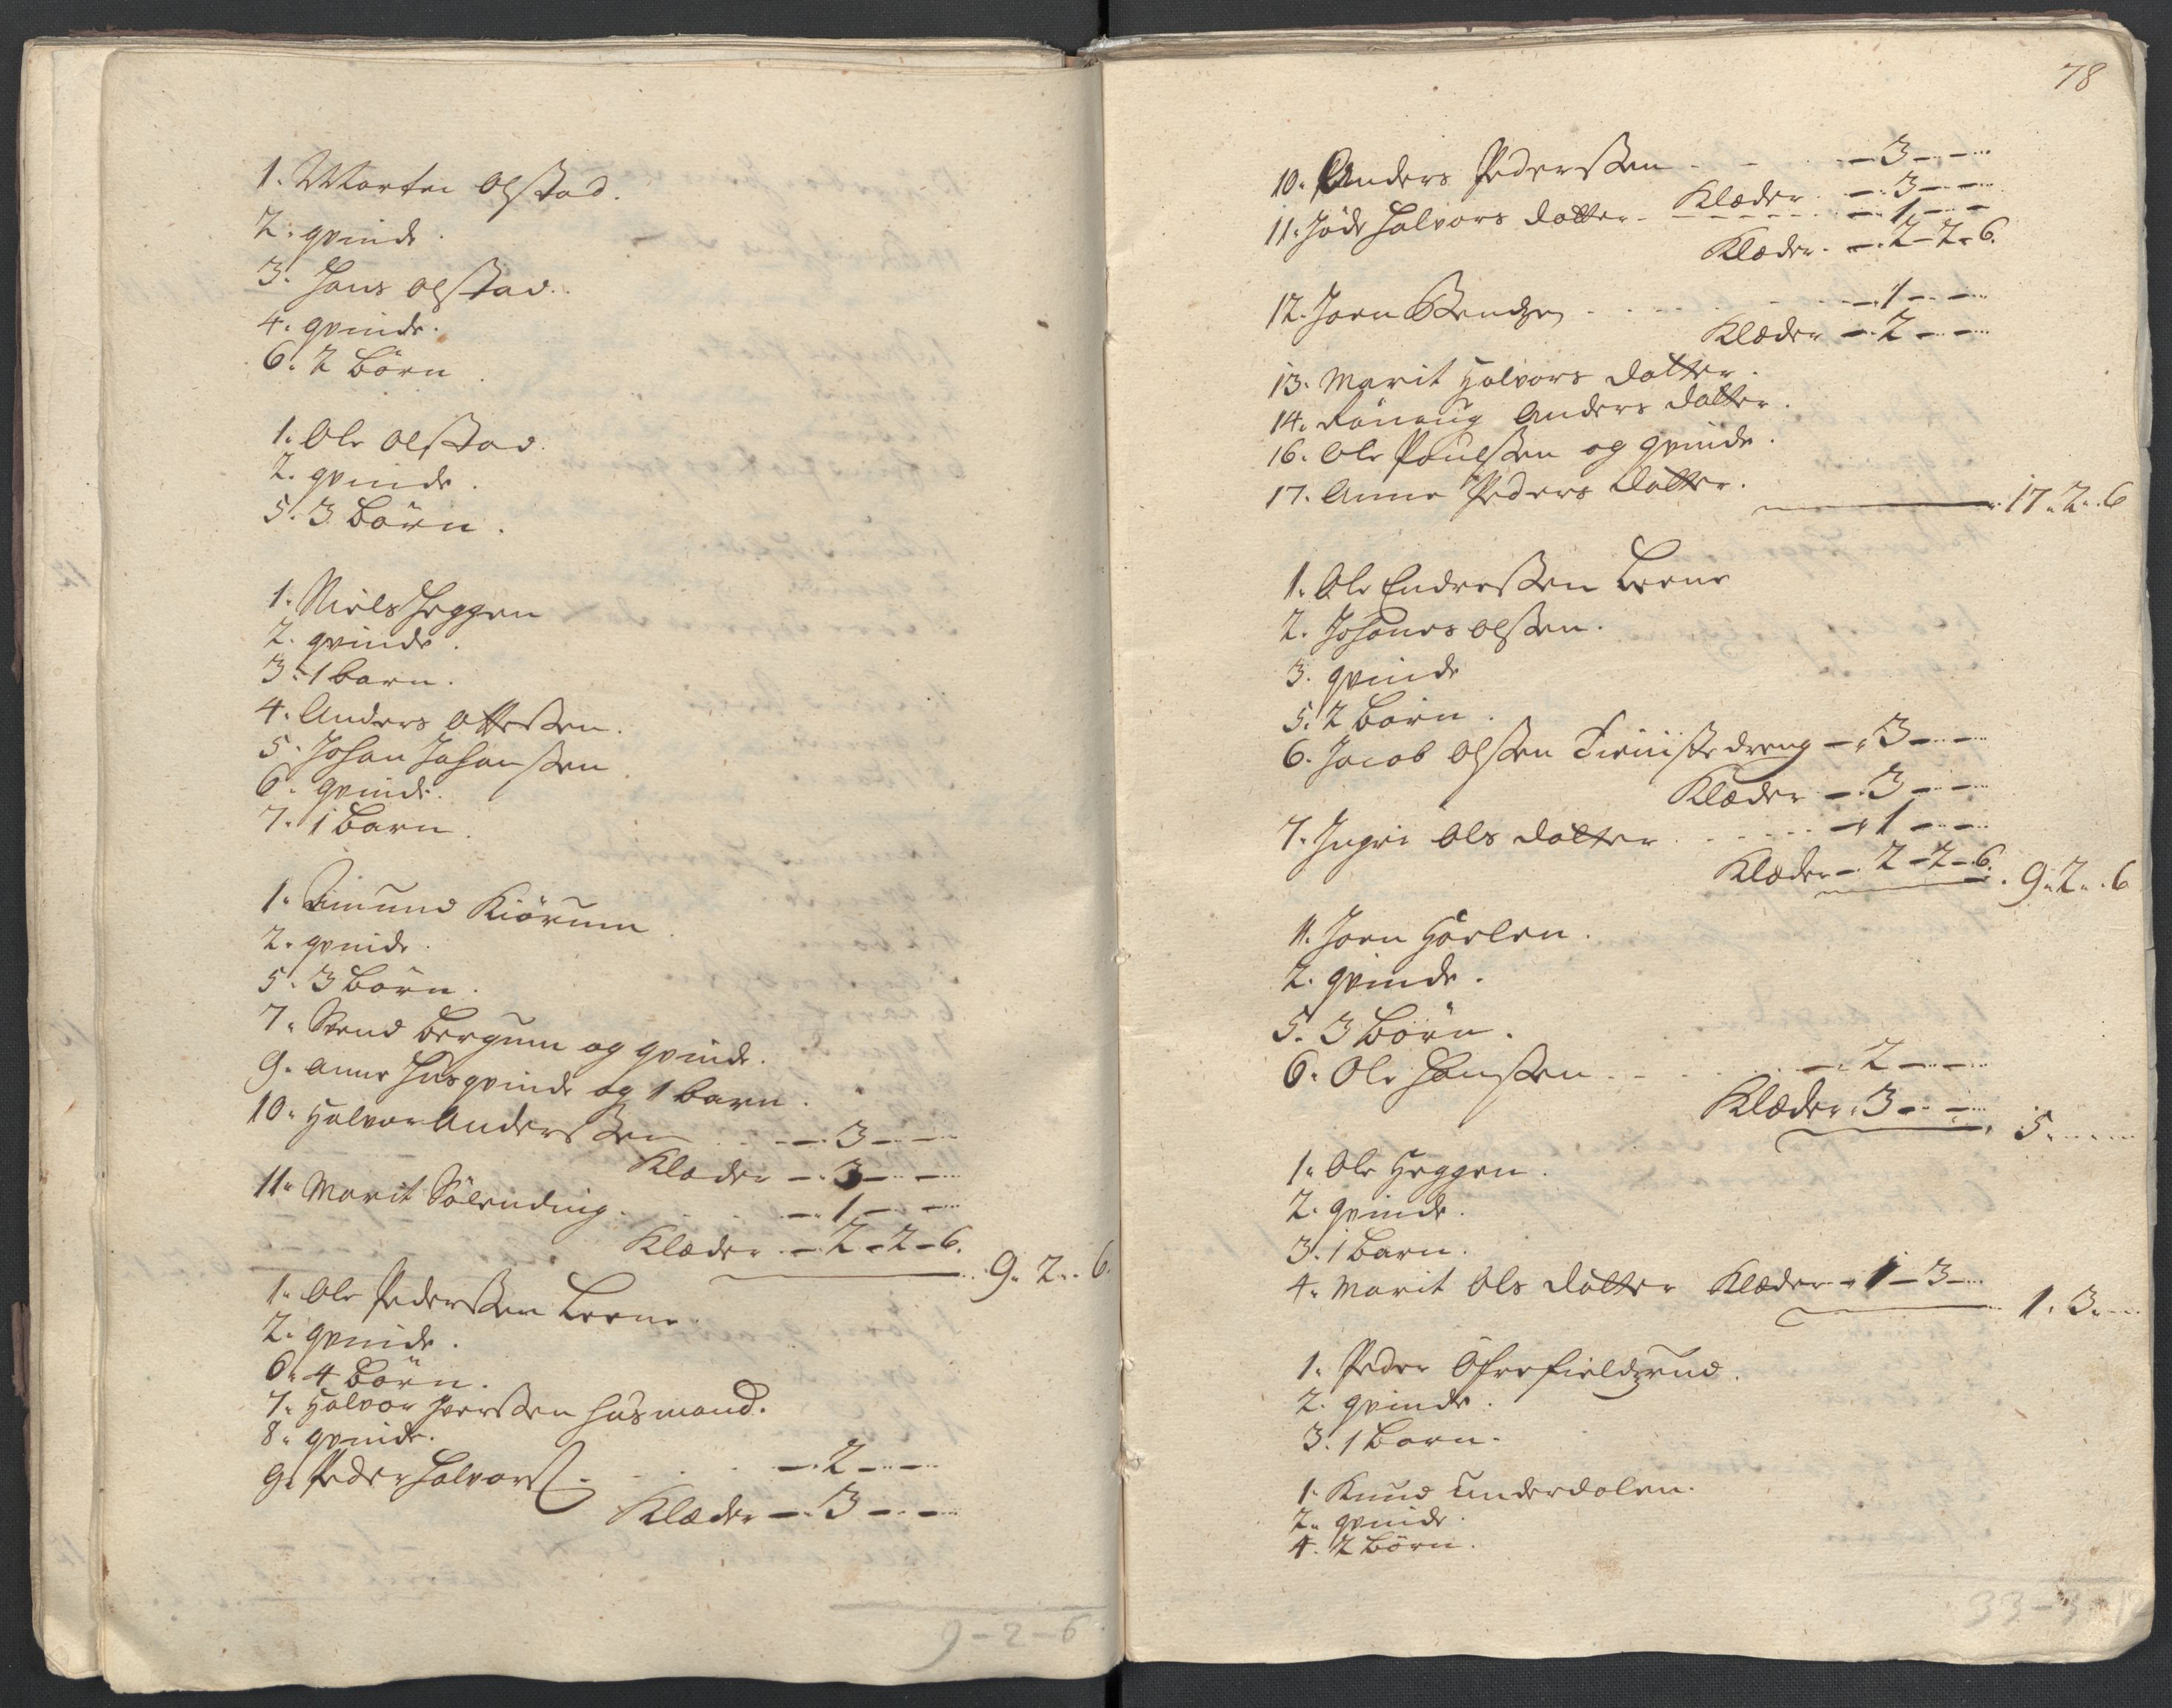 1. Morten Olstad.
2. qvinde.
3. Hans Olstad.
4. qvinde.
6. 2 börn.
1. Ole Olstad.
2. qvinde.
5. 3 börn.
1. Niels Heggen
2. qvinde.
3. 1 barn.
4. Anders Ottessen.
5. Johan Johanssen
6. qvinde.
7. 1 barn.
1. Amund Kiörum
2. qvinde.
5. 3 börn.
7. Svend Bergum og qvinde.
9. Anne Husqvinde og 1 barn.
10. Halvor Anderssen - 3 -
Klæder - 3 -
11. Marit Sölending - 1 -
Klæder - 2 - 2 - 6.
9. 2. 6.
1. Ole Pederssen Leene.
2. qvinde.
6. 4 börn.
7. Halvor Iverssen Husmand.
8. qvinde.
9. Peder Halvors: - 2 -
Klæder - 3 -
9 - 2 - 6
78
10. Anders Pederssen - 3 -
Klæder - 3 -
11. Halvors datter - 1 -
Klæder - 2 - 2 - 6.
12. Joen - 1 -
Klæder - 2 -
13. Marit Halvors datter.
14. Rönnug Anders datter.
16. Ole Poulssen og qvinde.
17. Anne Peders datter.
17. 2. 6
1. Ole Endressen Leene
2. Johanes Olssen.
3. qvinde
5. 2 börn.
6. Jacob Olssen Tieniste dreng - 3 -
Klæder - 3 -
7. Ingri Ols datter - 1 -
Klæder - 2 - 2 - 6.
9. 2. 6
1. Joen Hörlen.
2. qvinde.
5. 3 börn.
6. Ole Hanssen - 2 -
Klæder. 3 -
5. -
1. Ole Heggen.
2. qvinde.
3. 1 barn.
4. Marit Ols datter Klæder - 1 - 3 -
1. 3. -
1. Peder
2. qvinde.
3. 1 barn.
1. Knud Underdalen.
2. qvinde.
4. 2 börn.
33 - 3 - 12